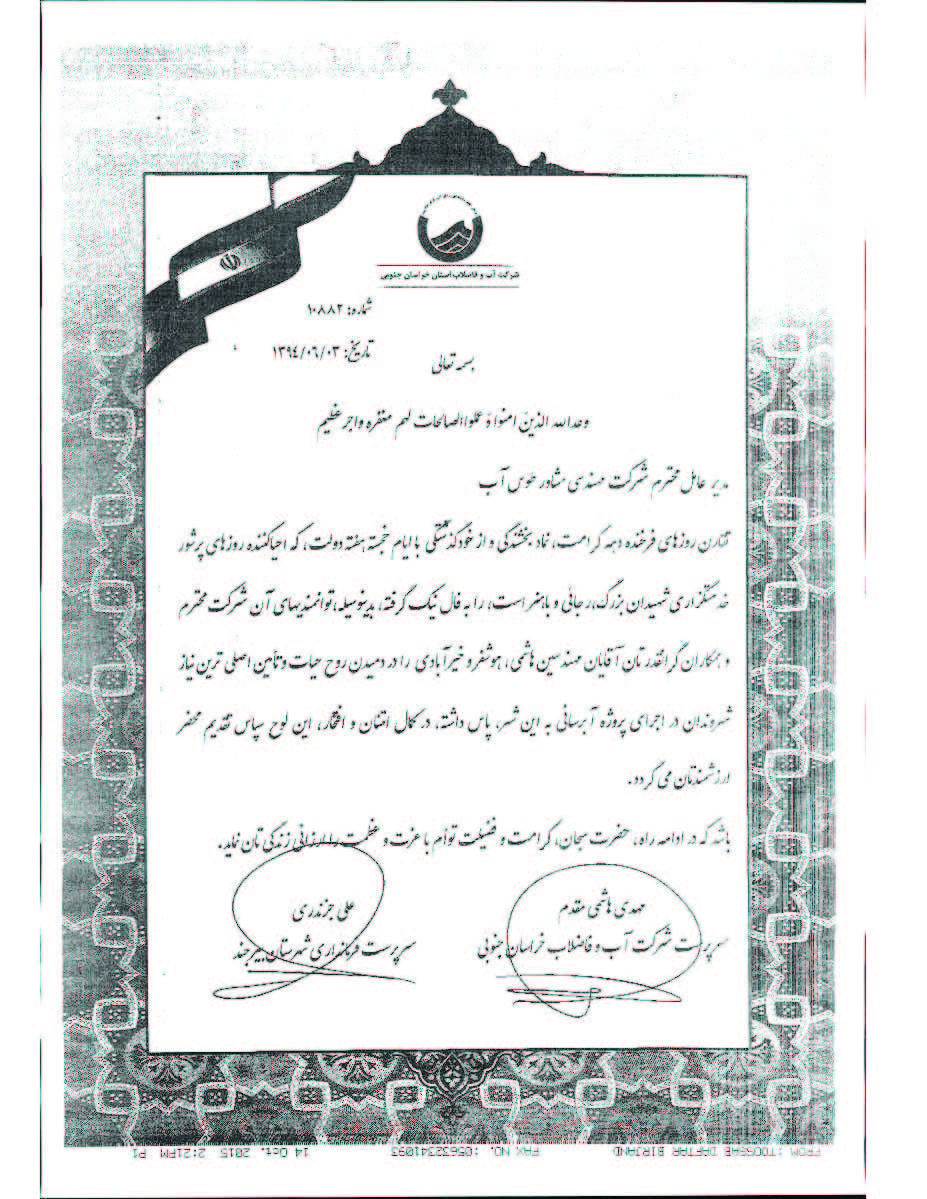 شرکت آب و فاضلاب استان خراسان جنوبی
شماره: ۱۰۸۸۲
تاریخ: ۱۳۹٤/۰٦/۰۳
بسمه تعالی
وعدالله الذین امنوا و عملواالصالحات لهم مغفره واجر عظیم
مدیر عامل محترم شرکت مهندسی مشاور طوس آب
تقارن روزهای فرخنده دهه کرامت، نماد بخشندگی و از خودگذشتگی با ایام خجسته هفته دولت، که احیاکننده روزهای پرشور
خدمتگزاری شهیدان بزرگ، رجائی و باهنر است، را به فال نیک گرفته، بدینوسیله، توانمندیهای آن شرکت محترم
و همکاران گرانقدرتان آقایان مهندسین هاشمی، هوشفر و خیرآبادی را در دمیدن روح حیات و تأمین اصلی ترین نیاز
شهروندان در اجرای پروژه آبرسانی به این شهر، پاس داشته، در کمال امتنان و افتخار، این لوح سپاس تقدیم محضر
ارزشمندتان می گردد.
باشد که در ادامه راه، حضرت سبحان، کرامت و فضیلت توأم با عزت و عظمت را ارزانی زندگی تان نماید.
مهدی هاشمی مقدم
سرپرست شرکت آب و فاضلاب خراسان جنوبی
علی جرندری
سرپرست فرمانداری شهرستان بیرجند
FROM :TOOSSAB DAFTAR BIRJAND FAX NO. :05632341093 14 Oct. 2015 2:21PM P1